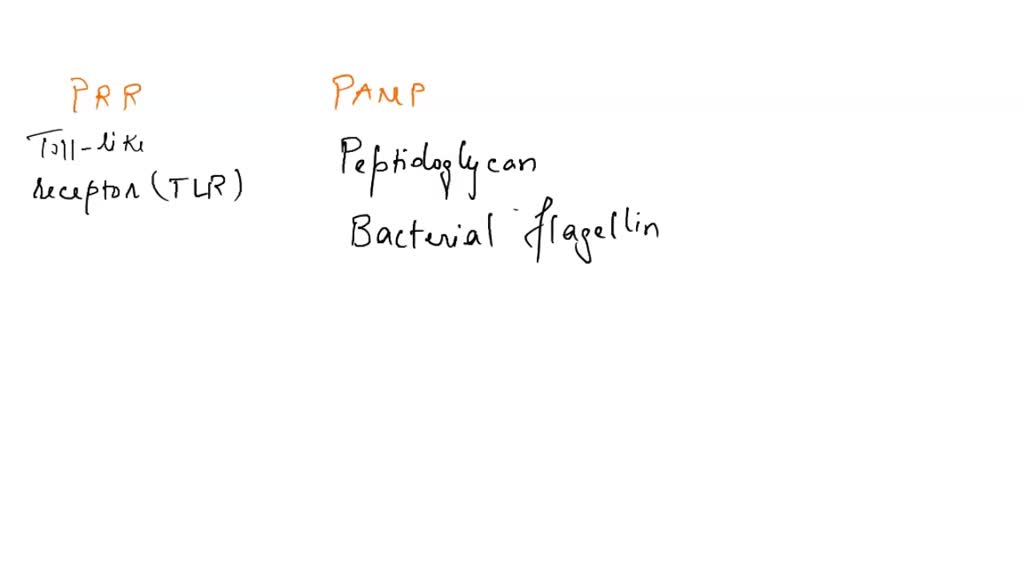 PRR PAMP
Toll-like
receptor (TLR)
Peptidoglycan
Bacterial flagellin